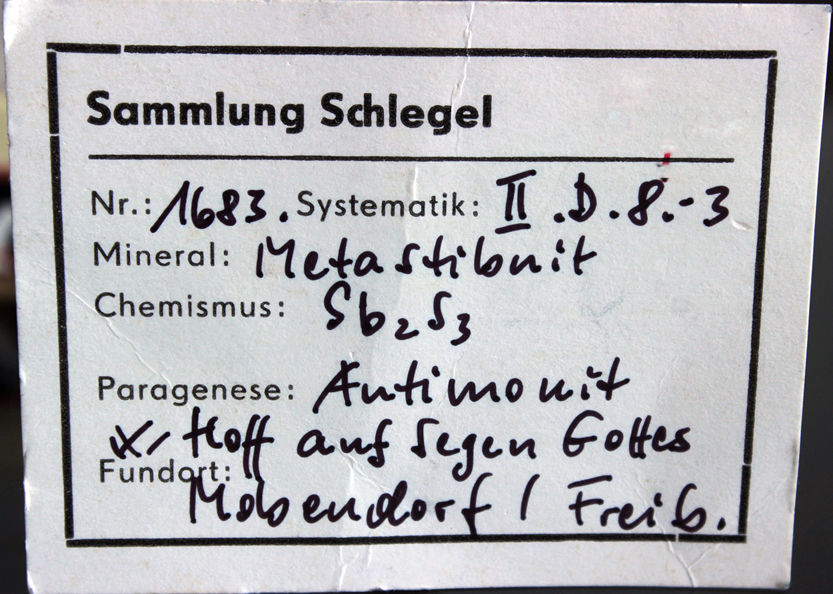 Sammlung Schlegel
Nr.: 1683. Systematik: II.D.8.-3
Mineral: Metastibnit
Chemismus: Sb₂S₃
Paragenese: Antimonit
Hoff auf Segen Gottes
Fundort:
Mobendorf / Freib.